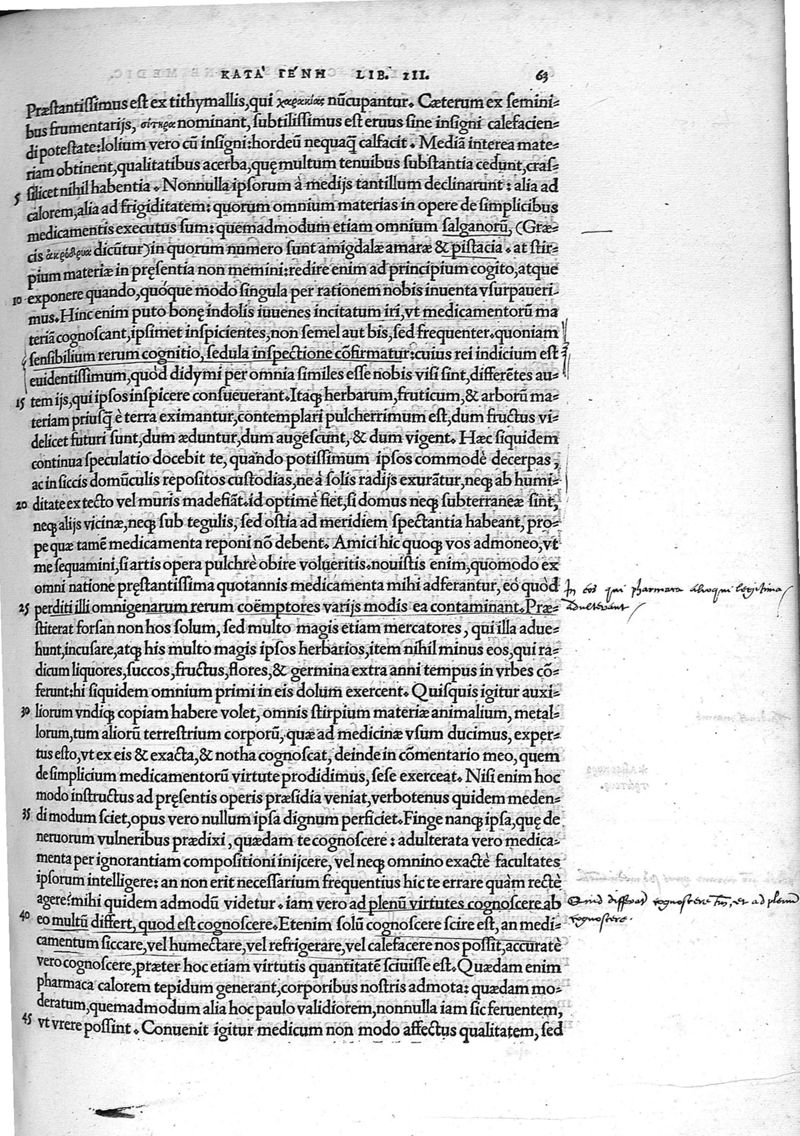 ΚΑΤΑ' ΓΕ'ΝΗ LIB. III. 63
Præstantissimus est ex tithymallis, qui χαρακίας nūcupantur. Cæterum ex semini-
bus frumentarijs, σιτηρα nominant, subtilissimus est eruus sine insigni calefacien-
di potestate: lolium vero cū insigni: hordeū nequaꝙ̃ calfacit. Mediā interea mate-
riam obtinent, qualitatibus acerba, quę multum tenuibus substantia cedunt, cras-
5 silicet nihil habentia. Nonnulla ipsorum à medijs tantillum declinarunt: alia ad
calorem, alia ad frigiditatem: quorum omnium materias in opere de simplicibus
medicamentis executus sum: quemadmodum etiam omnium salganorū, (Græ-
cis ἀκρόδρυα dicūtur) in quorum numero sunt amigdalæ amaræ & pistacia. at stir-
pium materiæ in pręsentia non memini: redire enim ad principium cogito, atque
10 exponere quando, quóque modo singula per rationem nobis inuenta vsurpaueri-
mus. Hinc enim puto bonę indolis iuuenes incitatum iri, vt medicamentorū ma
teriā cognoscant, ipsimet inspicientes, non semel aut bis, sed frequenter. quoniam
sensibilium rerum cognitio, sedula inspectione cōfirmatur: cuius rei indicium est
euidentissimum, quòd didymi per omnia similes esse nobis visi sint, differētes au-
15 tem ijs, qui ipsos inspicere consueuerant. Itaqꝫ herbarum, fruticum, & arborū ma-
teriam priusꝙ̃ è terra eximantur, contemplari pulcherrimum est, dum fructus vi-
delicet futuri sunt, dum æduntur, dum augescunt, & dum vigent. Hæc siquidem
continua speculatio docebit te, quando potissimum ipsos commodè decerpas,
ac in siccis domūculis repositos custodias, ne à solis radijs exurātur, neqꝫ ab humi-
20 ditate ex tecto vel muris madefiāt. id optimè fiet, si domus neqꝫ subterraneæ sint,
neqꝫ alijs vicinæ, neqꝫ sub tegulis, sed ostia ad meridiem spectantia habeant, pro-
pe quæ tamē medicamenta reponi nō debent. Amici hic quoqꝫ vos admoneo, vt
me sequamini, si artis opera pulchrè obire volueritis. nouistis enim, quomodo ex
omni natione pręstantissima quotannis medicamenta mihi adferantur, eò quòd
In eos qui pharmaca alioqui legitima
25 perditi illi omnigenarum rerum coëmptores varijs modis ea contaminant. Præ-
adulterant
stiterat forsan non hos solum, sed multo magis etiam mercatores, qui illa adue-
hunt, incusare, atqꝫ his multo magis ipsos herbarios, item nihil minus eos, qui ra-
dicum liquores, succos, fructus, flores, & germina extra anni tempus in vrbes cō-
ferunt: hi siquidem omnium primi in eis dolum exercent. Quisquis igitur auxi-
30 liorum vndiqꝫ copiam habere volet, omnis stirpium materiæ animalium, metal-
lorum, tum aliorū terrestrium corporū, quæ ad medicinæ vsum ducimus, exper-
tus esto, vt ex eis & exacta, & notha cognoscat, deinde in cōmentario meo, quem
de simplicium medicamentorū virtute prodidimus, sese exerceat. Nisi enim hoc
modo instructus ad pręsentis operis præsidia veniat, verbotenus quidem meden-
35 di modum sciet, opus vero nullum ipsa dignum perficiet. Finge nanqꝫ ipsa, quę de
neruorum vulneribus prædixi, quædam te cognoscere: adulterata vero medica-
menta per ignorantiam compositioni inijcere, vel neqꝫ omnino exactè facultates
ipsorum intelligere: an non erit necessarium frequentius hic te errare quàm rectè
agere? mihi quidem admodū videtur. iam vero ad plenū virtutes cognoscere ab
Quid differat cognoscere et ad plenū
40 eo multū differt, quod est cognoscere. Etenim solū cognoscere scire est, an medi-
cognoscere.
camentum siccare, vel humectare, vel refrigerare, vel calefacere nos possit, accuratè
vero cognoscere, præter hoc etiam virtutis quantitatē sciuisse est. Quædam enim
pharmaca calorem tepidum generant, corporibus nostris admota: quædam mo-
deratum, quemadmodum alia hoc paulo validiorem, nonnulla iam sic feruentem,
45 vt vrere possint. Conuenit igitur medicum non modo affectus qualitatem, sed